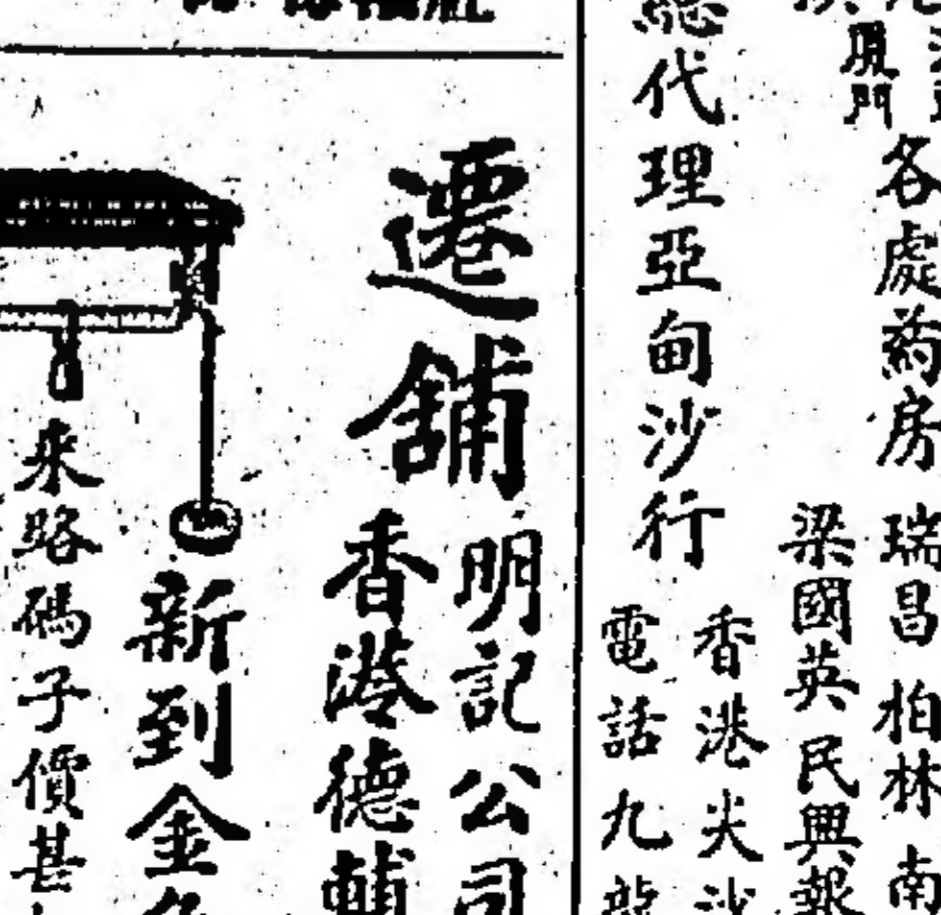 厦門
各處葯房
瑞昌
柏林
南
梁國英
民興
總代理亞甸沙行
香港尖沙
電話九龍
遷舖
明記公司
香港德輔
新到金
來路碼子價甚